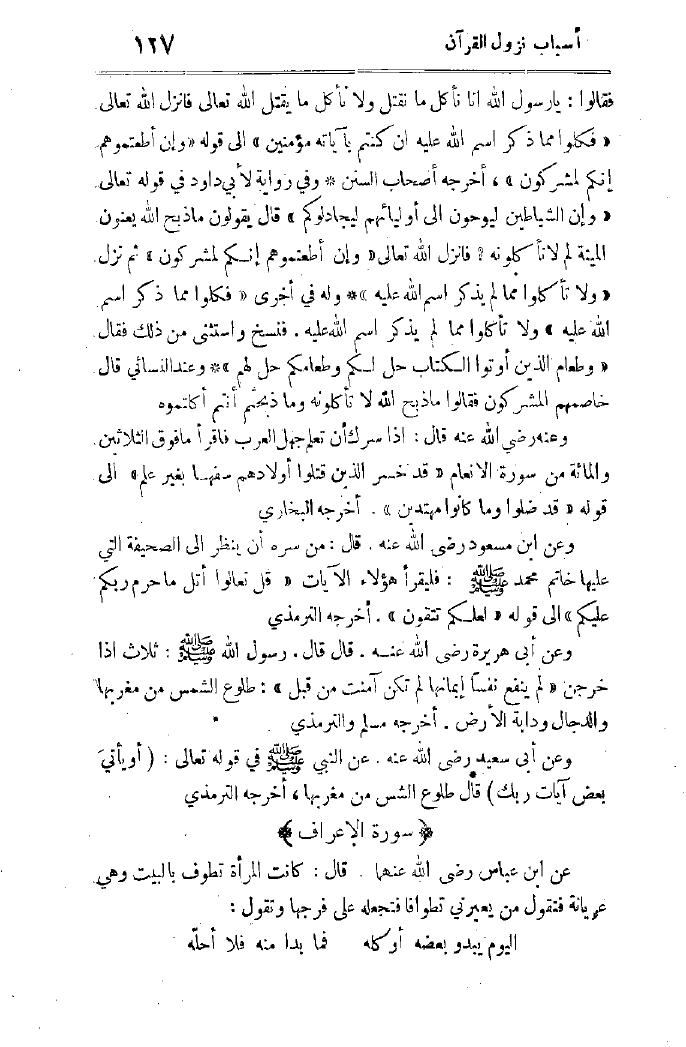 أسباب نزول القرآن ١٢٧
فقالوا : يارسول الله انا نأكل ما نقتل ولا نأكل ما يقتل الله تعالى فانزل الله تعالى
« فكلوا مما ذكر اسم الله عليه ان كنتم بآياته مؤمنين » الى قوله « وإن أطعتموهم
إنكم لمشركون » ، أخرجه أصحاب السنن * وفي رواية لأبي داود في قوله تعالى
« وإن الشياطين ليوحون الى أوليائهم ليجادلوكم » قال يقولون ماذبح الله يعنون
الميتة لم لا تأكلونه ? فانزل الله تعالى « وإن أطعتموهم إنكم لمشركون » ثم نزل
« ولا تأكلوا مما لم يذكر اسم الله عليه » * وله في أخرى « فكلوا مما ذكر اسم
الله عليه » ولا تأكلوا مما لم يذكر اسم الله عليه . فنسخ واستثنى من ذلك فقال
« وطعام الذين أوتوا الكتاب حل لكم وطعامكم حل لهم » * وعند النسائي قال
خاصمهم المشركون فقالوا ماذبح الله لا تأكلونه وما ذبحتم أنتم أكلتموه
وعنه رضي الله عنه قال : اذا سرك أن تعلم جهل العرب فاقرأ مافوق الثلاثين
والمائة من سورة الانعام « قد خسر الذين قتلوا أولادهم سفهـا بغير علم » الى
قوله « قد ضلوا وما كانوا مهتدين » . أخرجه البخاري
وعن ابن مسعود رضى الله عنه . قال : من سره أن ينظر الى الصحيفة التي
عليها خاتم محمد ﷺ : فليقرأ هؤلاء الآيات « قل تعالوا أتل ماحرم ربكم
عليكم » الى قوله « لعلكم تتقون » . أخرجه الترمذي
وعن أبى هريرة رضى الله عنـه . قال قال . رسول الله ﷺ : ثلاث اذا
خرجن « لم ينفع نفساً إيمانها لم تكن آمنت من قبل » : طلوع الشمس من مغربها
والدجال ودابة الأرض . أخرجه مسلم والترمذي
وعن أبى سعيد رضى الله عنه . عن النبي ﷺ في قوله تعالى : ( أو يأتيَ
بعض آيات ربك ) قال طلوع الشس من مغربها ، أخرجه الترمذي
﴿ سورة الإعراف ﴾
عن ابن عباس رضى الله عنهـا . قال : كانت المرأة تطوف بالبيت وهي
عريانة فتقول من يعيرني تطوافا فتجعله على فرجها وتقول :
اليوم يبدو بعضه أو كله فما بدا منه فلا أحلّه